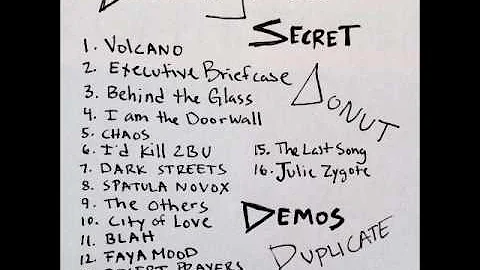 SECRET
1. VOLCANO
2. Executive Briefcase
3. Behind the Glass
4. I am the Doorwall
5. CHAOS
6. I'd Kill 2BU
7. DARK STREETS
8. SPATULA NOVOX
9. The Others
10. City of Love
11. BLAH
12. FAYA MOOD
DESERT PRAYERS
DONUT
15. The Last Song
16. Julie Zygote
DEMOS
DUPLICATE